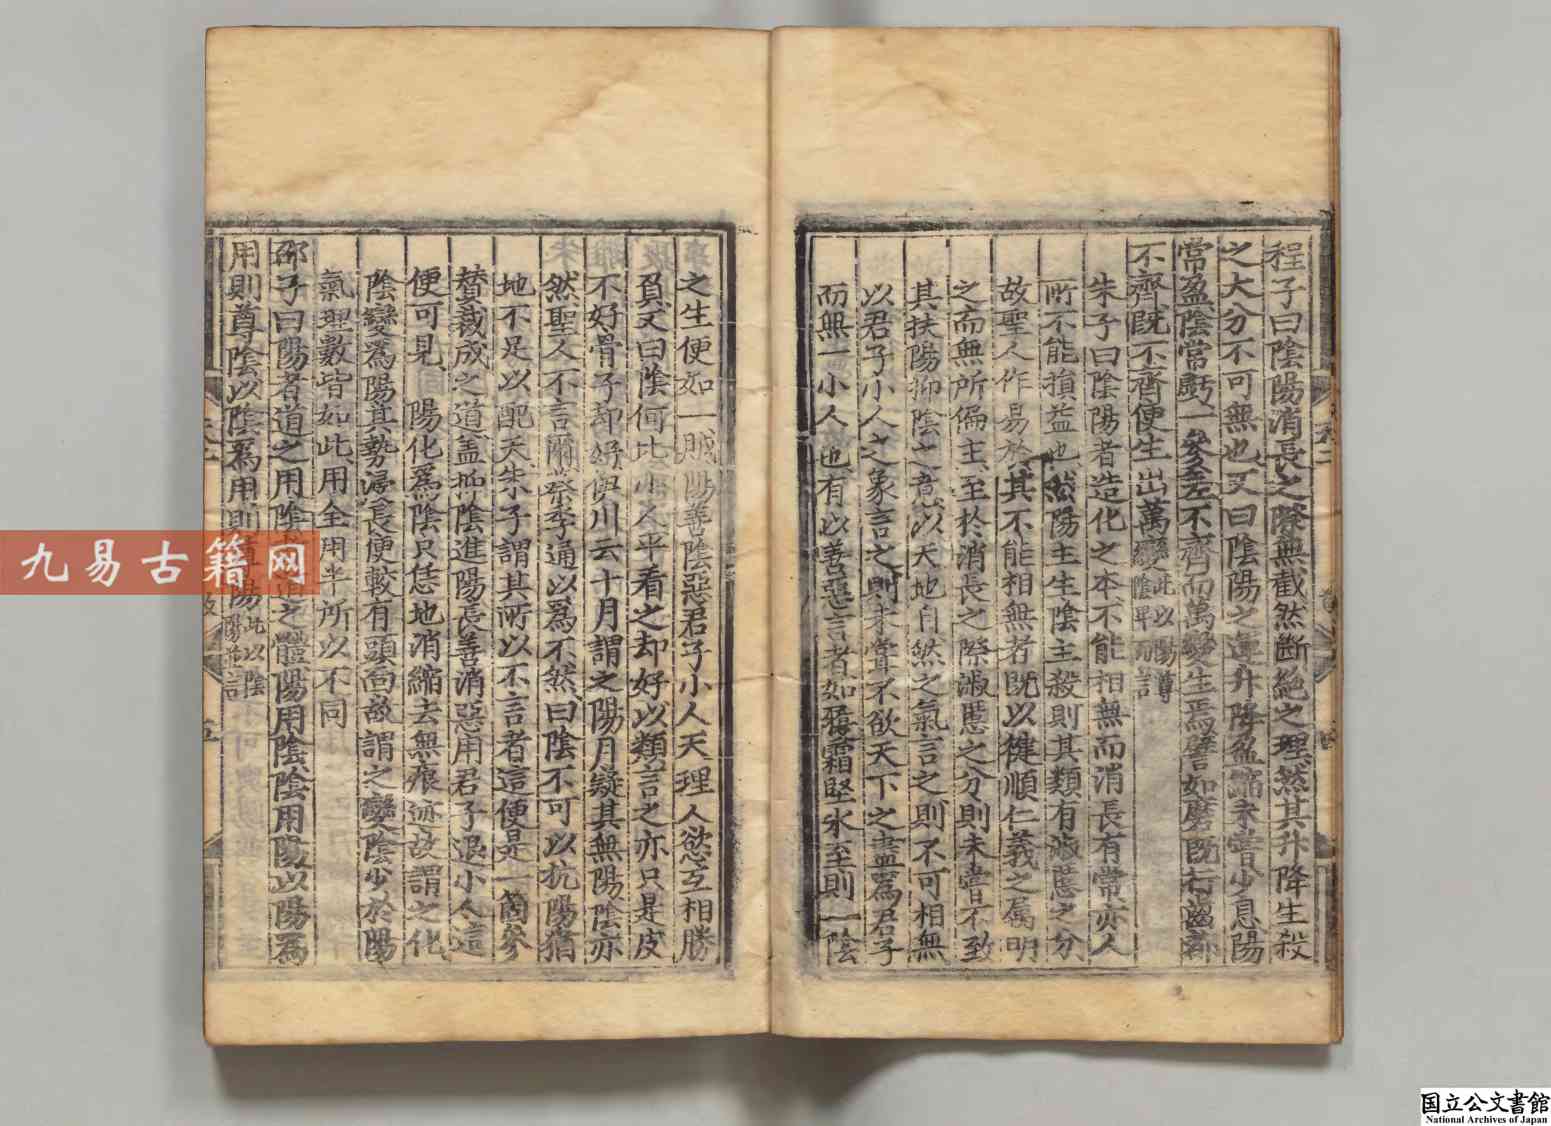 程子曰陰陽消長之際無截然斷絶之理然其升降生殺
之大分不可無也又曰陰陽之運升降盈縮未嘗少息陽
常盈陰常虧一參差不齊而萬變生焉譬如磨既行齒都
不齊既不齊便生出萬變此以陽尊陰卑而言
朱子曰陰陽者造化之本不能相無而消長有常亦人
所不能損益也然陽主生陰主殺則其類有淑慝之分
故聖人作易於其不能相無者既以健順仁義之屬明
之而無所偏主至於消長之際淑慝之分則未嘗不致
其扶陽抑陰之意以天地自然之氣言之則不可相無
以君子小人之象言之則未嘗不欲天下之盡爲君子
而無一小人也有以善惡言者如履霜堅氷至則一陰
之生便如一賊陽善陰惡君子小人天理人慾互相勝
負又曰陰何比小人平看之却好以類言之亦只是皮
不好骨子却好伊川云十月謂之陽月疑其無陽陰亦
然聖人不言爾蔡季通以爲不然曰陰不可以抗陽猶
地不足以配天朱子謂其所以不言者這便是一箇參
賛裁成之道盖抑陰進陽長善消惡用君子退小人這
便可見 陽化爲陰只恁地消縮去無痕迹故謂之化
陰變爲陽其勢浸長便較有頭面故謂之變陰少於陽
氣理數皆如此用全用半所以不同
邵子曰陽者道之用陰者道之體陽用陰陰用陽以陽爲
用則尊陰以陰爲用則尊陽此以陰陽並言
九易古籍网
国立公文書館
National Archives of Japan